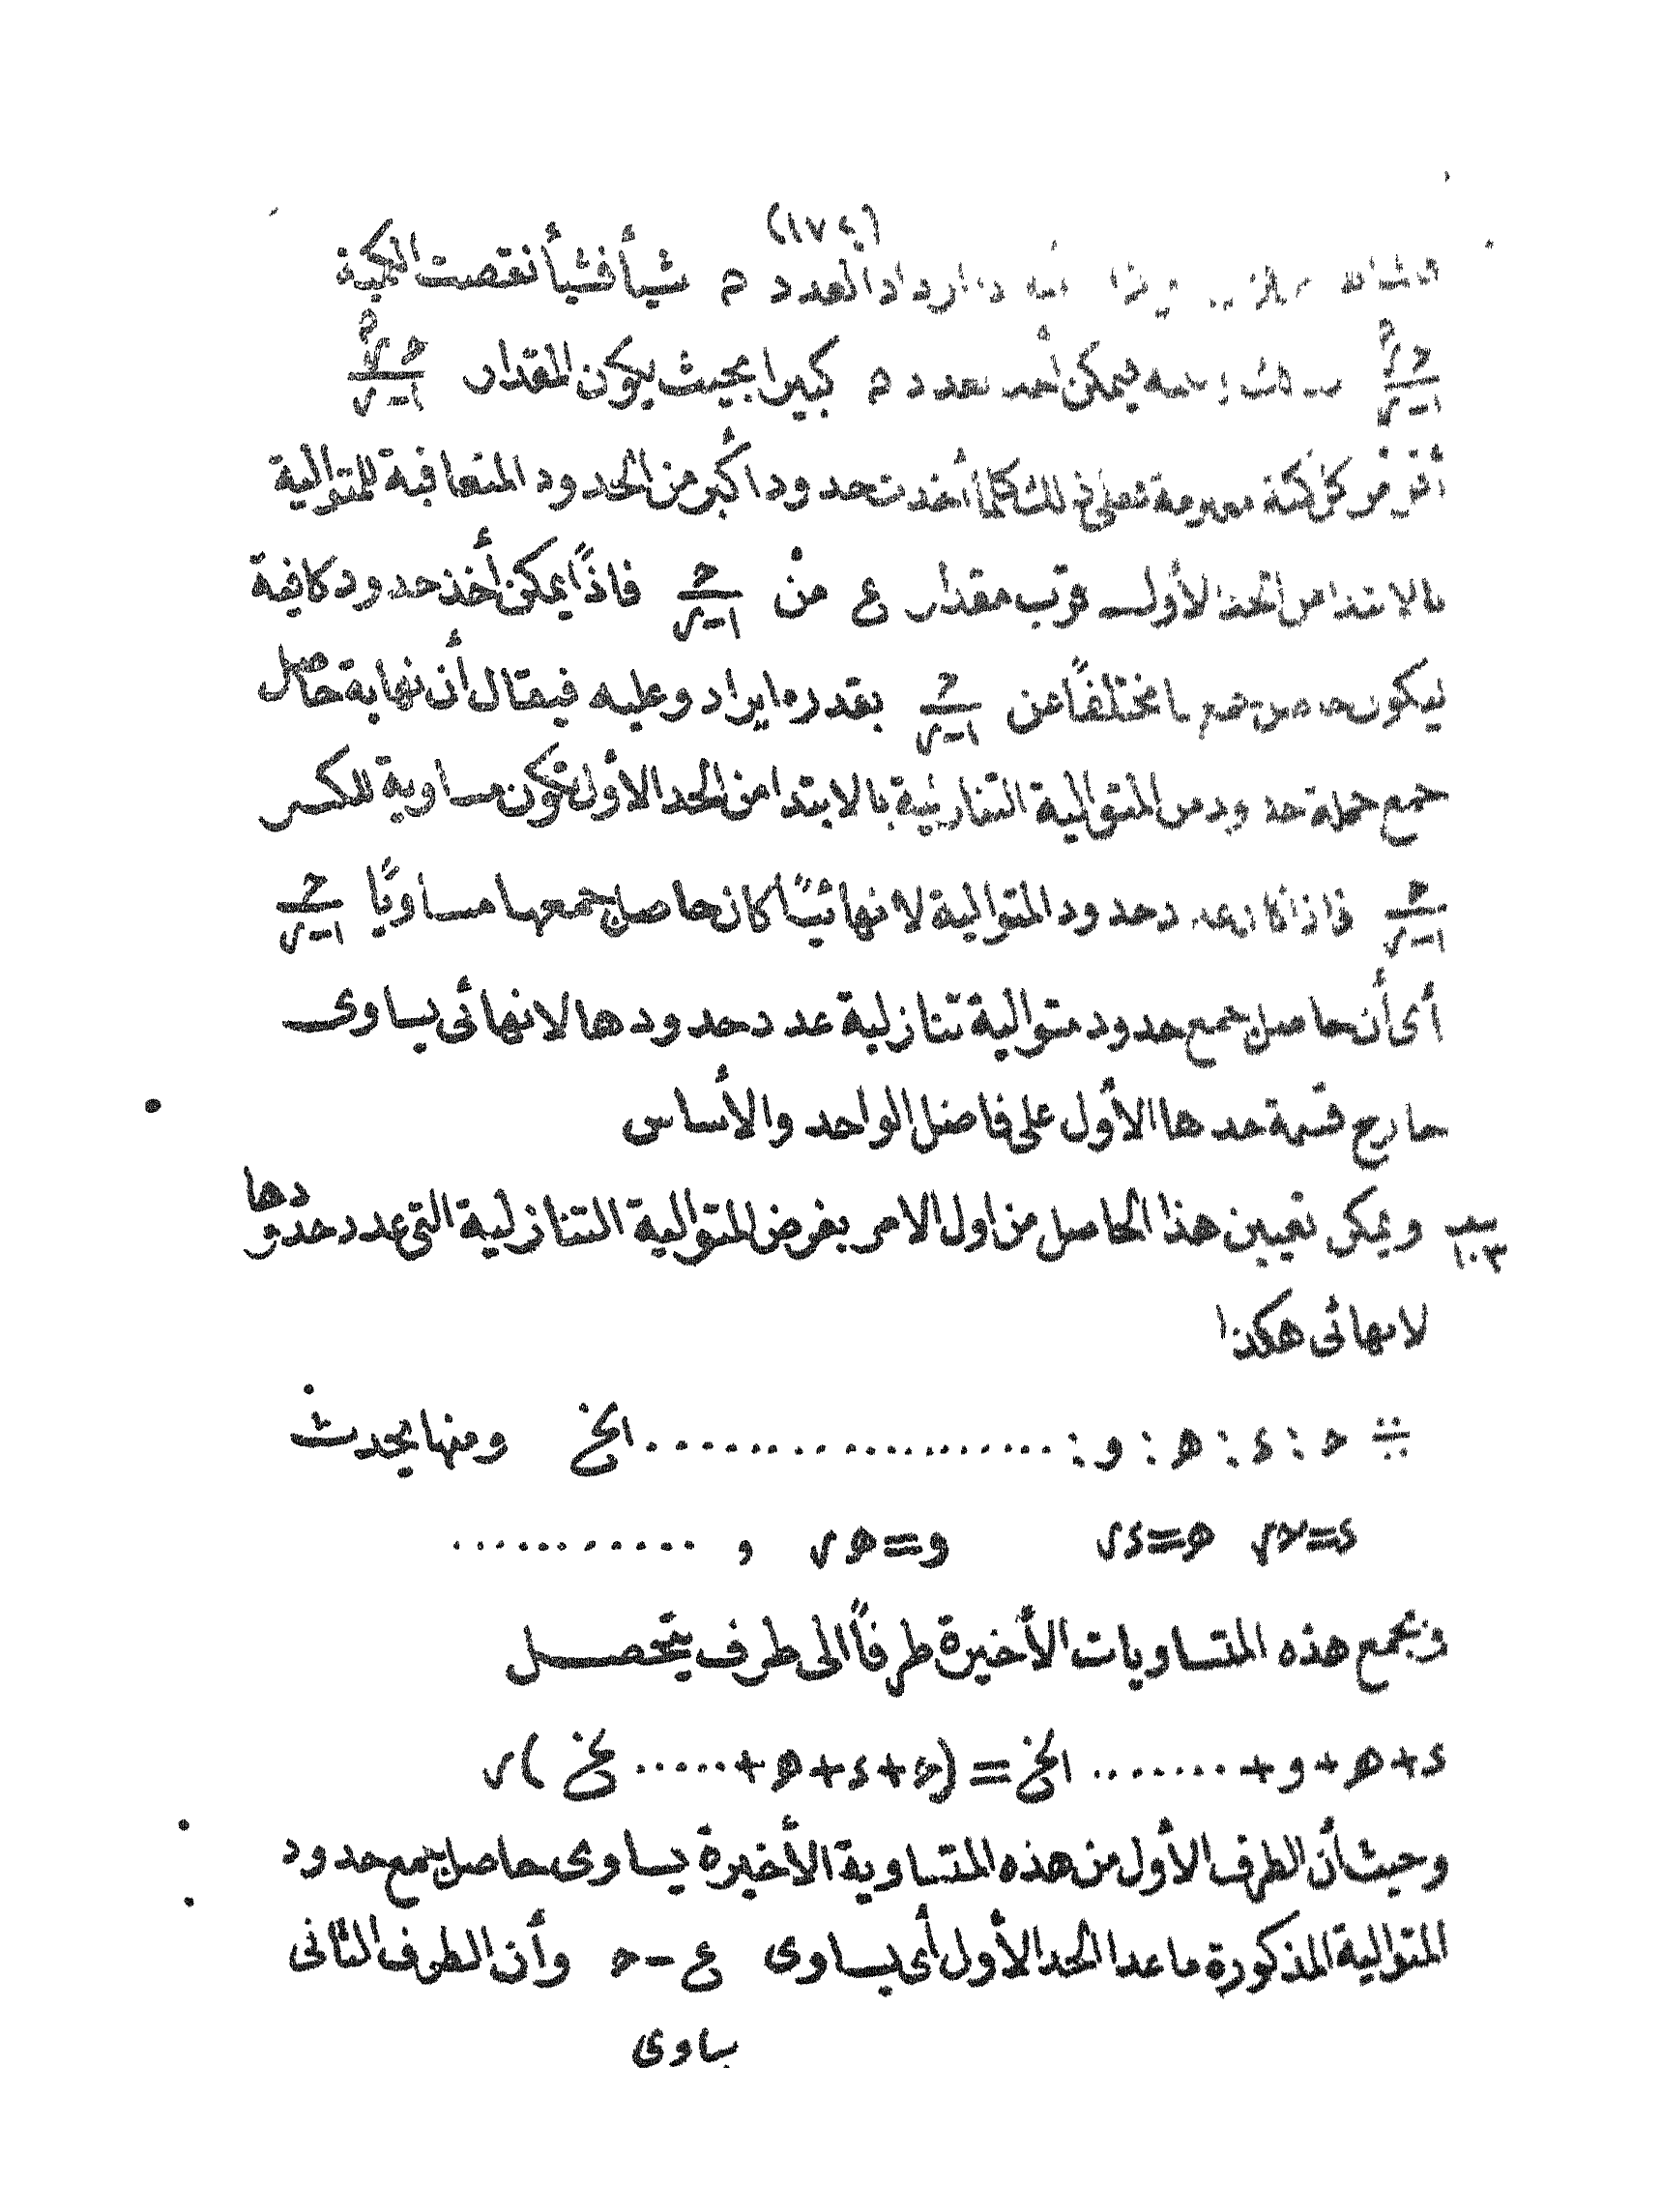 (١٧٤)
ازداد العدد م شيأ فشيأ نقصت الكمية
حـ رم / ١-ر فيمكن أخذ عدد م كبيرا بحيث يكون المقدار حـ رم / ١-ر
أقل من كل كمية معلومة فعلى ذلك كلما أخذت حدود اكبر من الحدود المتعاقبة للمتوالية
بالابتدا من الحد الأول قرب مقدار ع من حـ / ١-ر فاذًا يمكن أخذ حدود كافية
ليكون حاصل جمعها مختلفًا عن حـ / ١-ر بقدر ما يراد وعليه فيقال أن نهاية حاصل
جمع جملة حدود من المتوالية التنازلية بالابتدا من الحد الأول تكون مساوية للكسر
حـ / ١-ر فاذا كان عدد حدود المتوالية لانهائيًا كان حاصل جمعها مساويًا حـ / ١-ر
أى أن حاصل جمع حدود متوالية تنازلية عدد حدودها لانهائى يساوى
خارج قسمة حدها الأول على فاضل الواحد والأساس
بند ١٠٣ ويمكن تعيين هذا الحاصل من اول الامر بفرض المتوالية التنازلية التى عدد حدودها
لانهائى هكذا
÷÷ حـ : ء : هـ : و : .................... الخ ومنها يحدث
ء=حـر هـ=ءر و=هـر و ...........
وبجمع هذه المتساويات الأخيرة طرفاً الى طرف يتحصل
ء+هـ+و+ ....... الخ = (حـ+ء+هـ+ ..... الخ) ر
وحيث أن الطرف الأول من هذه المتساوية الأخيرة يساوى حاصل جمع حدود
المتوالية المذكورة ماعدا الحد الأول أى يساوى ع-حـ وأن الطرف الثانى
يساوى